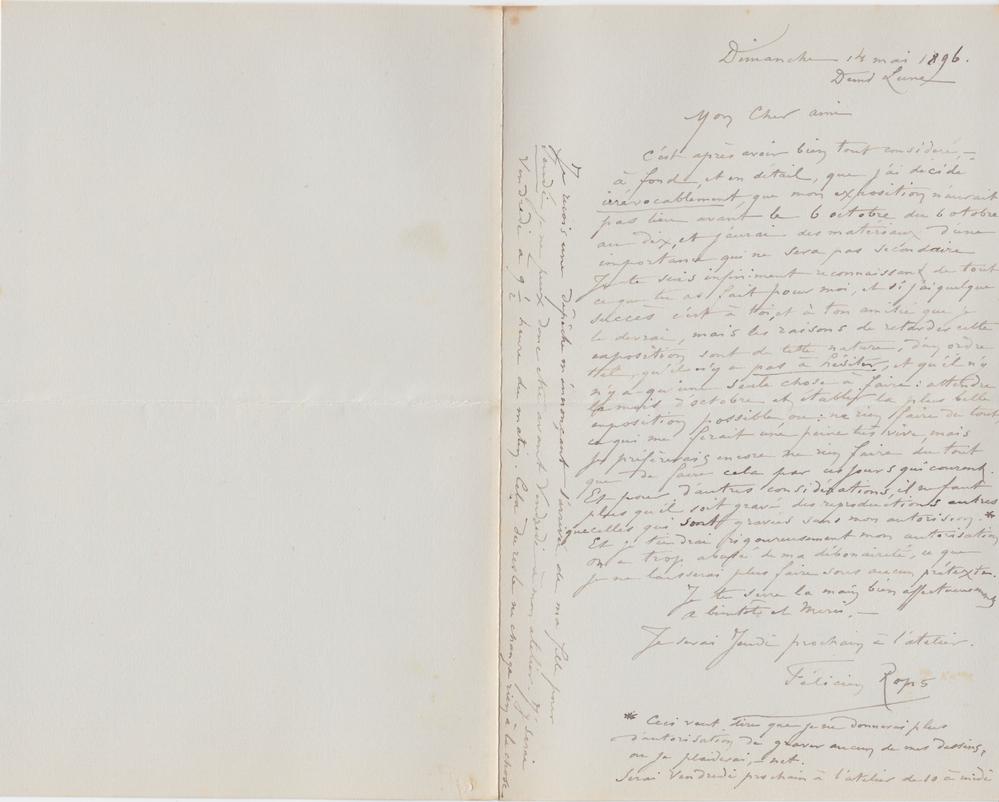 Dimanche 14 mai 1896.
Demi Lune
Mon Cher ami
c'est après avoir bien tout considéré, –
à fond, et en détail, que j'ai décidé
irrévocablement, que mon exposition n'aurait
pas lieu avant le 6 octobre du 6 octobre
au dix, et j'aurai des matériaux d'une
importance qui ne sera pas secondaire
Je te suis infiniment reconnaissant de tout
ce que tu as fait pour moi, et si j'ai quelque
succès c'est à toi, et à ton amitié que je
le devrai, mais les raisons de retarder cette
exposition sont de telle nature, d'un ordre
tel, qu'il n'y a pas à hésiter, et qu'il n'y
n'y a qu'une seule chose à faire : attendre
le mois d'octobre et établir la plus belle
exposition possible ou : ne rien faire du tout
ce qui me ferait une peine très vive, mais
je préfèrerais encore ne rien faire du tout
que de faire cela par ces jours qui courent.
Et pour d'autres considérations, il ne faut
plus qu'il soit gravé des reproductions autres
que celles qui sont gravées sans mon autorision. *
Et je tiendrai rigoureusement mon autorisation
on a trop abusé de ma débonaireté, ce que
je ne laisserai plus faire sous aucun prétexte.
Je te serre la main bien affectueusement
a bientôt et Merci. –
Je serai Jeudi prochain à l'atelier.
Félicien Rops
* Ceci veut dire que je ne donnerai plus
d'autorisation de graver aucun de mes dessins,
ou je plaiderai, – net.
Serai Vendredi prochain à l'atelier de 10 à midi
Je reçois une dépêche m'annonçant l'arrivée de ma fille pour
Jeudi je ne peux donc être avant Vendredi à mon atelier. J'y serai
Vendredi à 9 1/2 heure du matin. Cela du reste ne change rien à la chose.